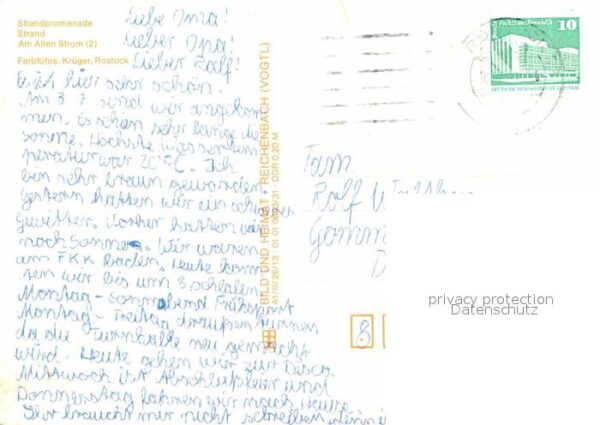 Strandpromenade
Strand
Am Alten Strom (2)
Farbfotos: Krüger, Rostock
Liebe Oma!
Lieber Opa!
Lieber Rolf!
Es ist hier sehr schön.
Am 3.7 sind wir angekom
men. Es schien sehr lange die
Sonne. Höchste Wassertem
peratur war 20°C. Ich
bin sehr braun geworden.
Gestern hatten wir ein schweres
Gewitter. Vorher hatten wir
noch Sonne. Wir waren
am FKK baden. Heute konn
ten wir bis um 8 schlafen.
Montag - Sonnabend Frühsport
Montag - Freitag draußen
da die Turnhalle neu gemacht
wird. Heute gehen wir zur Disco.
Mittwoch ist Abschlußfeier und
Donnerstag fahren wir nach Hause.
Ihr braucht mir nicht schreiben
BILD UND HEIMAT REICHENBACH (VOGTL)
DDR 0,20 M
Berlin, Palast der Republik
10
DEUTSCHE DEMOKRATISCHE REPUBLIK
Fam
Rolf
Gomm
D
8
privacy protection
Datenschutz